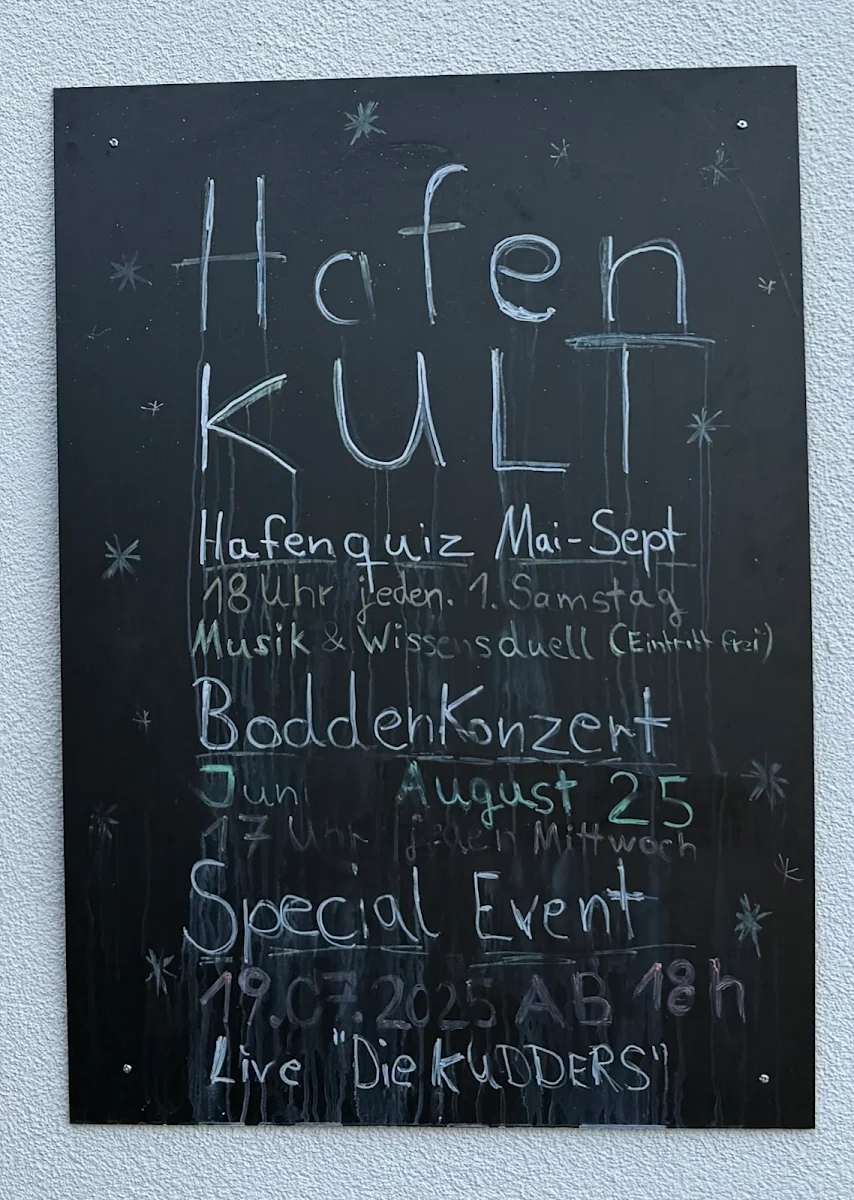 Hafen
KULT
Hafenquiz Mai-Sept
18 Uhr jeden. 1. Samstag
Musik & Wissensduell (Eintritt frei)
BoddenKonzert
Juni August 25
17 Uhr jeden Mittwoch
Special Event
19.07.2025 AB 18h
Live "Die KUDDERS"